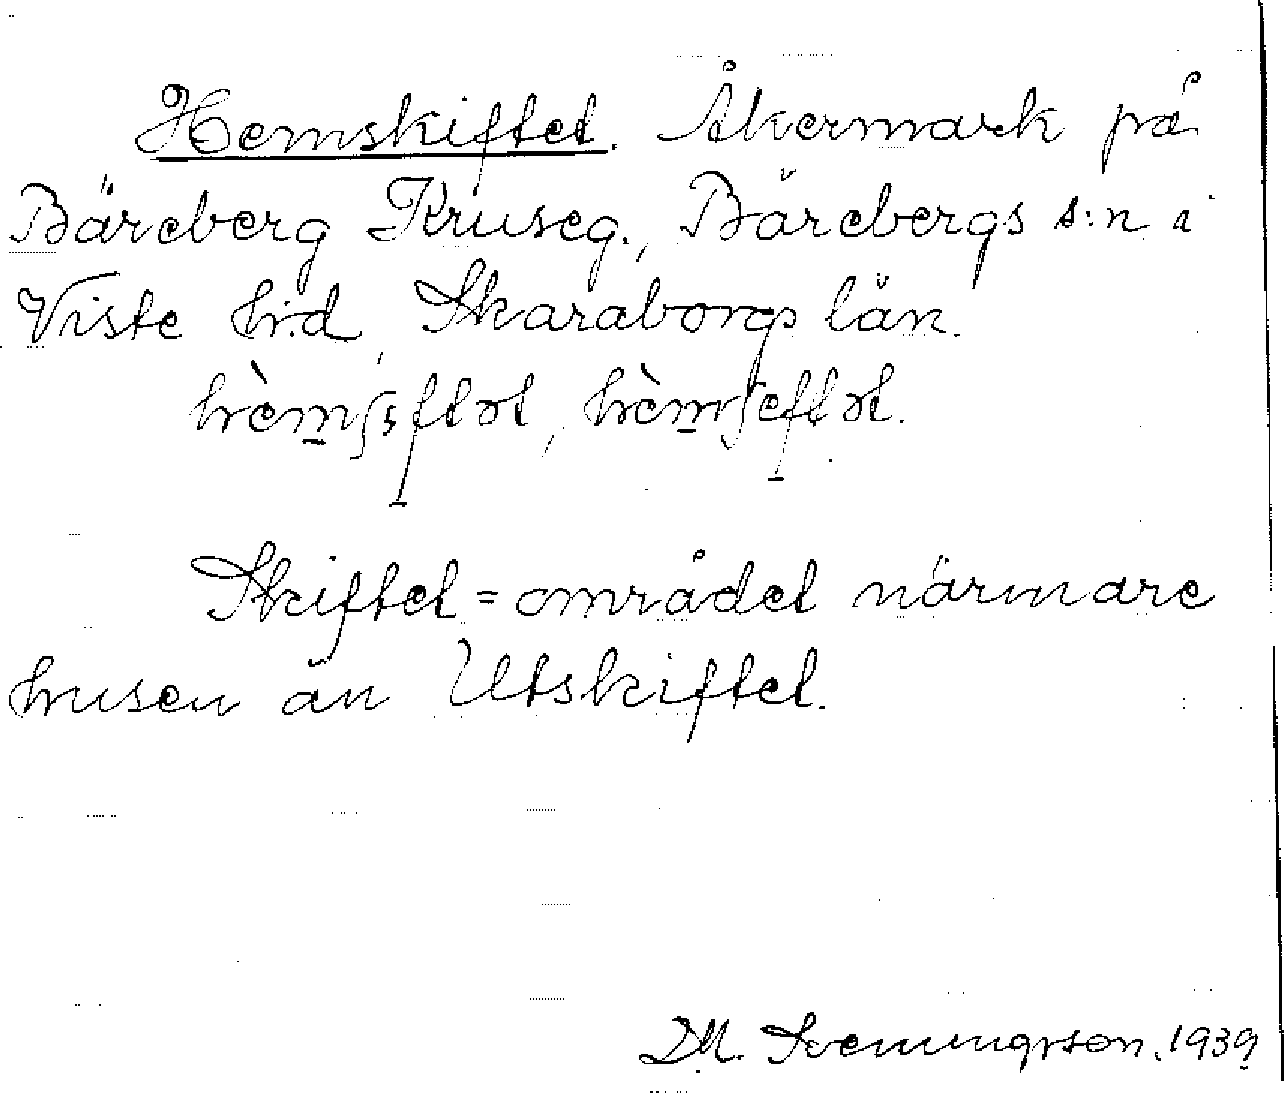 Hemskiftet. Åkermark på
Bäreberg Kruseg., Bärebergs s:n i
Viste hd, Skaraborgs län.
Skiftet = området närmare
husen än Utskiftet.
D.M. Svenningsson. 1939